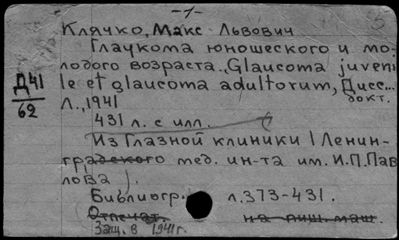 -1-
5
Клячко, Макс Львович
Глаукома юношеского и мо-
лодого возраста., Glaucoma juveni
le et glaucoma adultorum, Дисс...
докт.
Л., 1941
Д41
62
431 л. с илл.
Из Глазной клиники I Ленин-
градского мед. ин-та им. И.П.Пав
лова).
Библиогр. л.373-431.
Отпечат. на пиш. маш.
Защ. в 1941г.